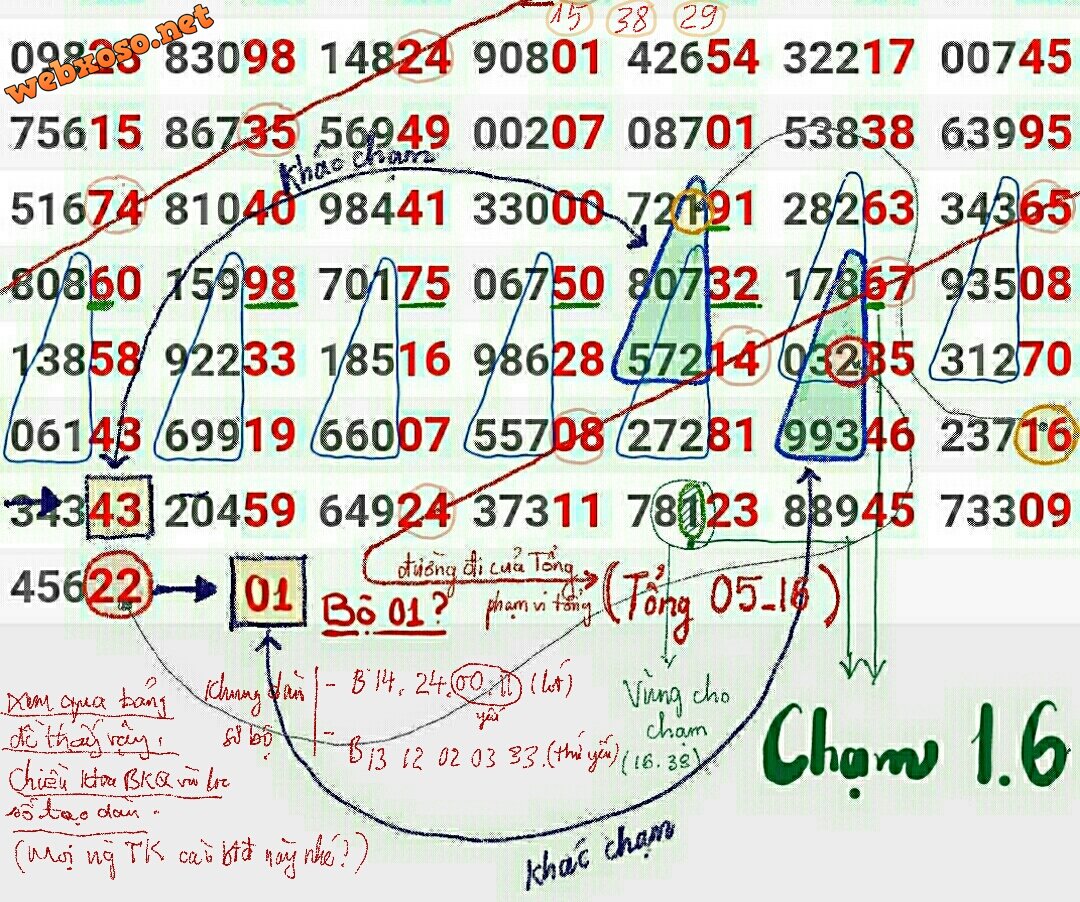 15 38 29
webxoso.net
09823 83098 14824 90801 42654 32217 00745
75615 86735 56949 00207 08701 53838 63995
Khác chạm
51674 81040 98441 33000 72191 28263 34365
80860 15998 70175 06750 80732 17867 93508
13858 92233 18516 98628 57214 03235 31270
06143 69919 66007 55708 27281 99346 23716
34343 20459 64924 37311 78123 88945 73309
45622 01
Bộ 01?
đường đi của Tổng
phạm vi tổng
(Tổng 05-16)
Khung dàn
sơ bộ
- B 14, 24, 00, 11 (lót)
yếu
- B 13 12 02 03 33. (thứ yếu)
Vùng cho
chạm
(16.38)
Chạm 1.6
Xem qua bảng
đề thấy vậy.
Chiều khóa BKQ và lọc
số tạo dàn.
(Mọi ng TK cài nay nhé?)
Khác chạm